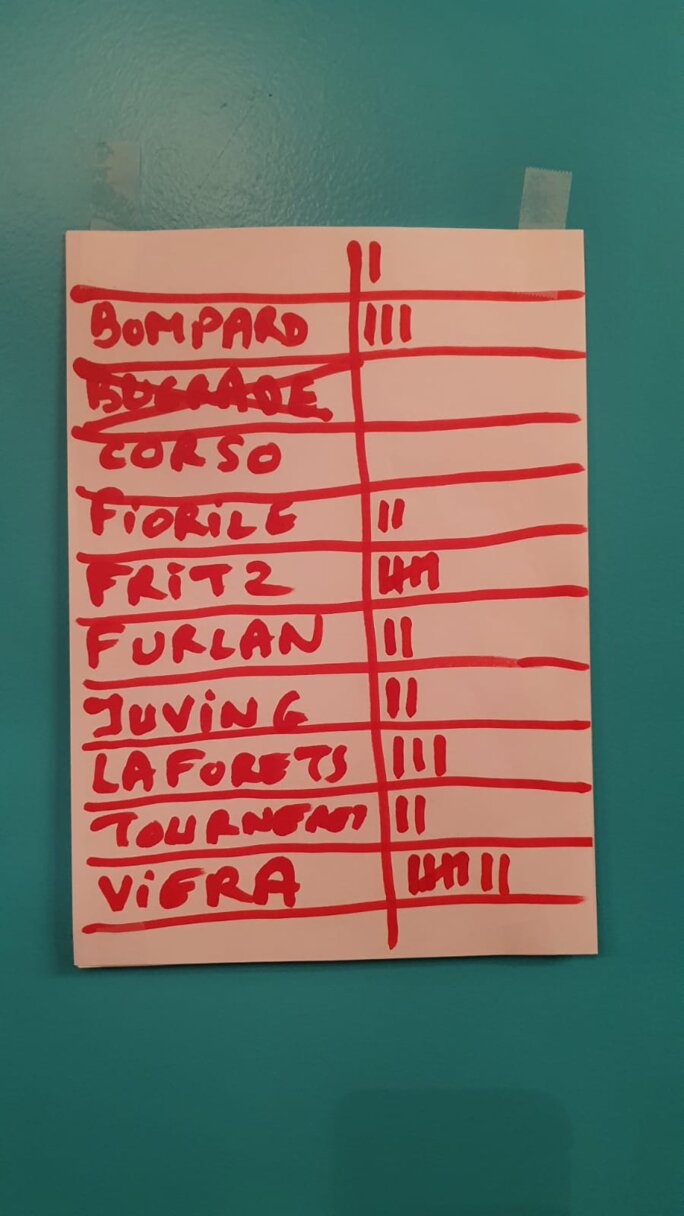 II
BOMPARD III
CORSO
FiORiLE II
FRiTZ IIII
FURLAN II
JUViNG II
LAFORETS III
TOURNERET II
ViERA IIII II